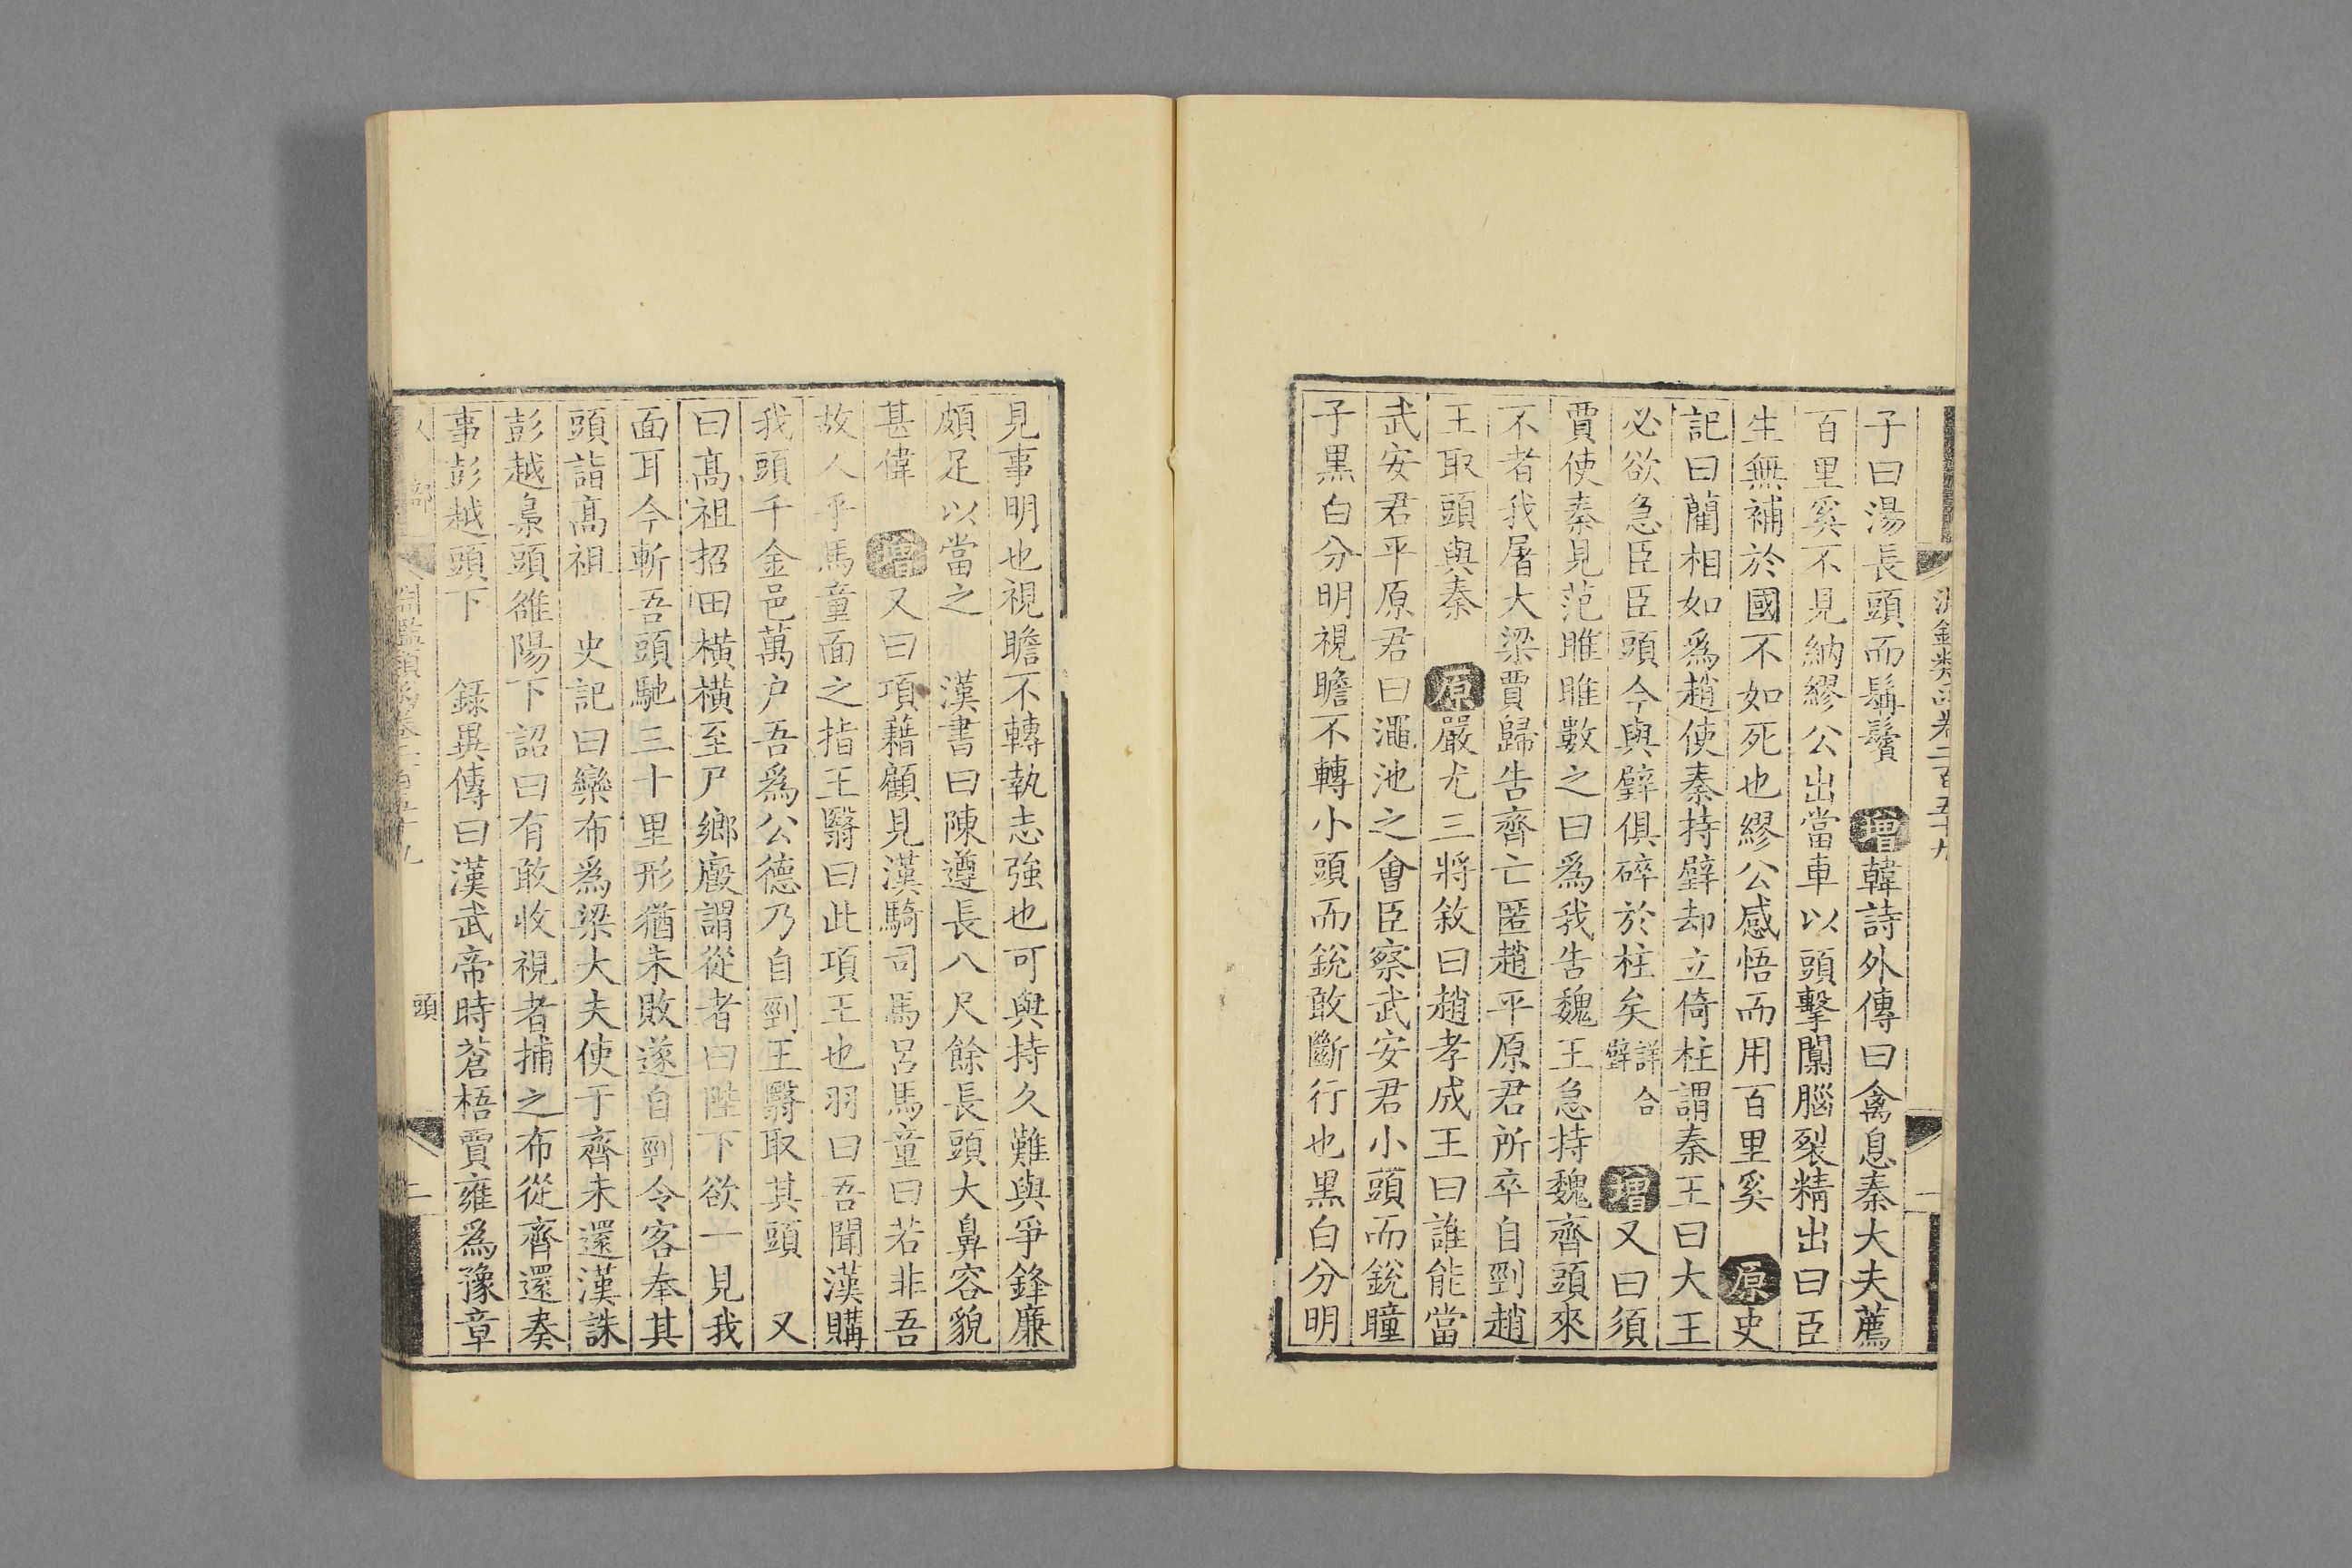 子曰湯長頭而鬋鬢　增韓詩外傳曰禽息秦大夫薦
百里奚不見納繆公出當車以頭擊闑腦裂精出曰臣
生無補於國不如死也繆公感悟而用百里奚　原史
記曰藺相如爲趙使秦持璧却立倚柱謂秦王曰大王
必欲急臣臣頭今與璧俱碎於柱矣詳璧合　增又曰須
賈使秦見范雎雎數之曰爲我告魏王急持魏齊頭來
不者我屠大梁賈歸告齊亡匿趙平原君所卒自剄趙
王取頭與秦　原嚴尤三將敘曰趙孝成王曰誰能當
武安君平原君曰澠池之會臣察武安君小頭而銳瞳
子黑白分明視瞻不轉小頭而銳敢斷行也黑白分明
見事明也視瞻不轉執志強也可與持久難與爭鋒廉
頗足以當之　漢書曰陳遵長八尺餘長頭大鼻容貌
甚偉　增又曰項藉顧見漢騎司馬呂馬童曰若非吾
故人乎馬童面之指王翳曰此項王也羽曰吾聞漢購
我頭千金邑萬户吾爲公德乃自剄王翳取其頭　又
曰高祖招田橫橫至尸鄉廄謂從者曰陛下欲一見我
面耳今斬吾頭馳三十里形猶未敗遂自剄令客奉其
頭詣高祖　史記曰欒布爲梁大夫使于齊未還漢誅
彭越梟頭雒陽下詔曰有敢收視者捕之布從齊還奏
事彭越頭下　錄異傳曰漢武帝時蒼梧賈雍爲豫章
頭
二